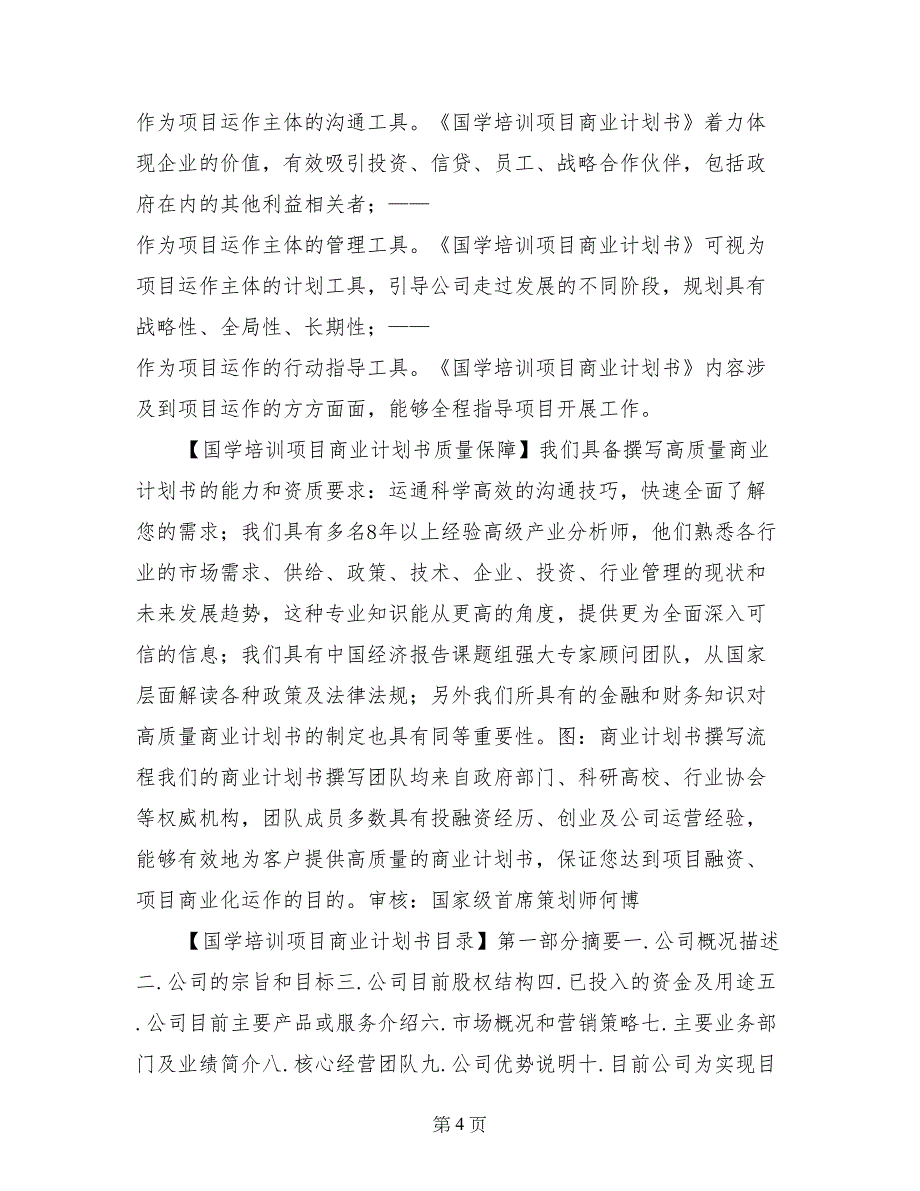 作为项目运作主体的沟通工具。《国学培训项目商业计划书》着力体
现企业的价值，有效吸引投资、信贷、员工、战略合作伙伴，包括政
府在内的其他利益相关者；——
作为项目运作主体的管理工具。《国学培训项目商业计划书》可视为
项目运作主体的计划工具，引导公司走过发展的不同阶段，规划具有
战略性、全局性、长期性；——
作为项目运作的行动指导工具。《国学培训项目商业计划书》内容涉
及到项目运作的方方面面，能够全程指导项目开展工作。
【国学培训项目商业计划书质量保障】我们具备撰写高质量商业
计划书的能力和资质要求：运通科学高效的沟通技巧，快速全面了解
您的需求；我们具有多名8年以上经验高级产业分析师，他们熟悉各行
业的市场需求、供给、政策、技术、企业、投资、行业管理的现状和
未来发展趋势，这种专业知识能从更高的角度，提供更为全面深入可
信的信息；我们具有中国经济报告课题组强大专家顾问团队，从国家
层面解读各种政策及法律法规；另外我们所具有的金融和财务知识对
高质量商业计划书的制定也具有同等重要性。图：商业计划书撰写流
程我们的商业计划书撰写团队均来自政府部门、科研高校、行业协会
等权威机构，团队成员多数具有投融资经历、创业及公司运营经验，
能够有效地为客户提供高质量的商业计划书，保证您达到项目融资、
项目商业化运作的目的。审核：国家级首席策划师何博
【国学培训项目商业计划书目录】第一部分摘要一.公司概况描述
二.公司的宗旨和目标三.公司目前股权结构四.已投入的资金及用途五
.公司目前主要产品或服务介绍六.市场概况和营销策略七.主要业务部
门及业绩简介八.核心经营团队九.公司优势说明十.目前公司为实现目
第 4 页